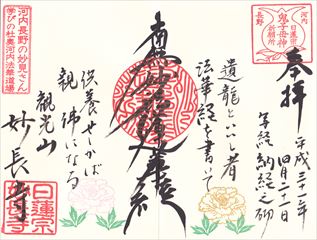 奉拝
平成三十一年
四月二十一日
写経納経之砌
遺龍といゝし者
法華経を書いて
南無妙法蓮華経
供養せしかば
親佛になる
観光山
妙長寺
河内長野の妙見さん
学びの杜裏河内法華道場
鬼子母神
日蓮宗
妙長寺